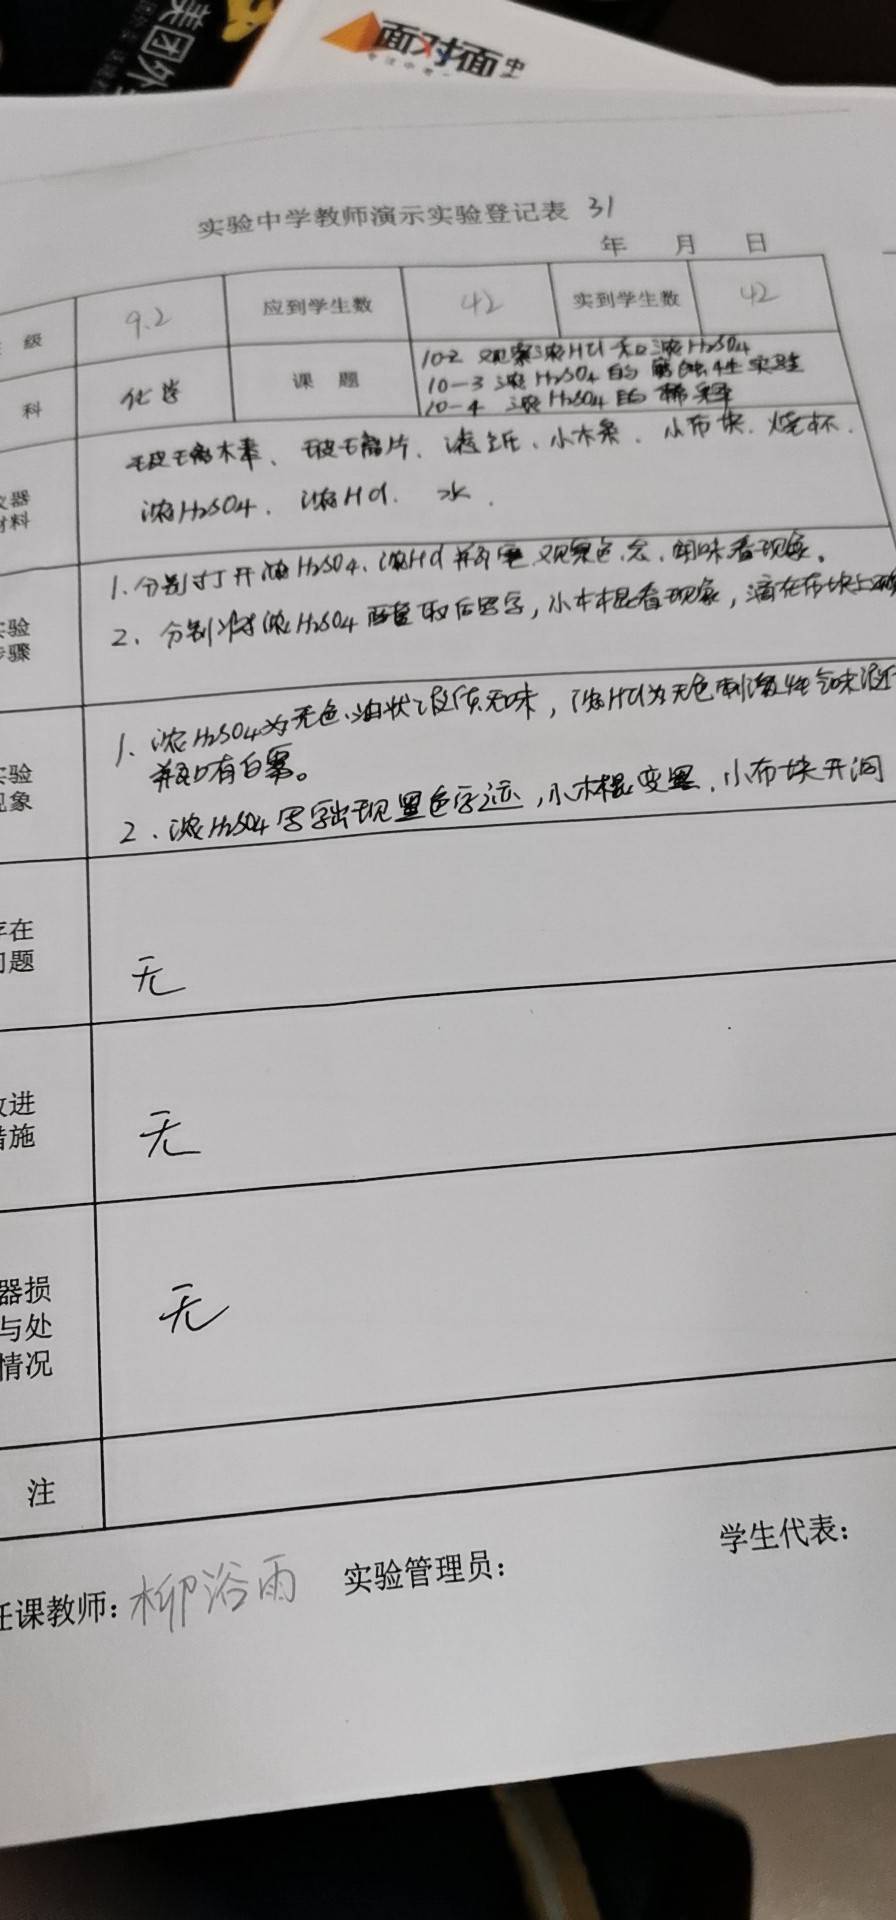 美团外
面对面 中
实验中学教师演示实验登记表 31
年 月 日
级 9.2 应到学生数 42 实到学生数 42
科 化学 课 题 10-2 观察浓HCl和浓H2SO4
10-3 浓H2SO4的腐蚀性实验
10-4 浓H2SO4的稀释
仪器 玻璃木奉、玻璃片、滤纸、小木条、小布块、烧杯、
材料 浓H2SO4、浓HCl、水、
实验 1.分别打开浓H2SO4、浓HCl 观察色态、闻味看现象。
步骤 2、分别将浓H2SO4 取后写字,小木棍看现象,滴在布块上
实验 1、浓H2SO4为无色、油状液体无味,浓HCl为无色刺激性气味液
现象 并瓶口有白雾。
2、浓H2SO4写字出现黑色字迹,小木棍变黑、小布块开洞
存在
问题 无
改进
措施 无
器损
与处 无
情况
注
任课教师:柳浴雨 实验管理员: 学生代表: